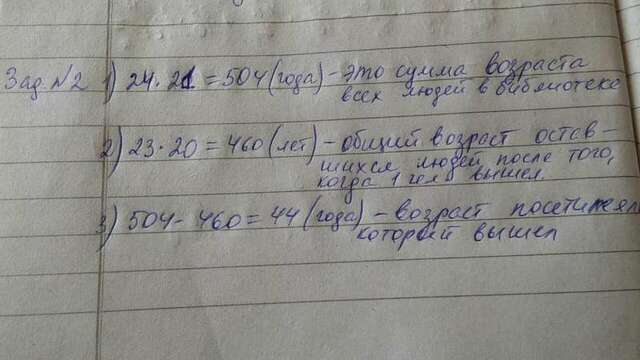 Зад. №2 1) 24 · 21 = 504 (года) – это сумма возраста
всех людей в библиотеке
2) 23 · 20 = 460 (лет) – общий возраст остав-
шихся людей после того,
когда 1 чел. вышел
3) 504 - 460 = 44 (года) – возраст посетителя
который вышел